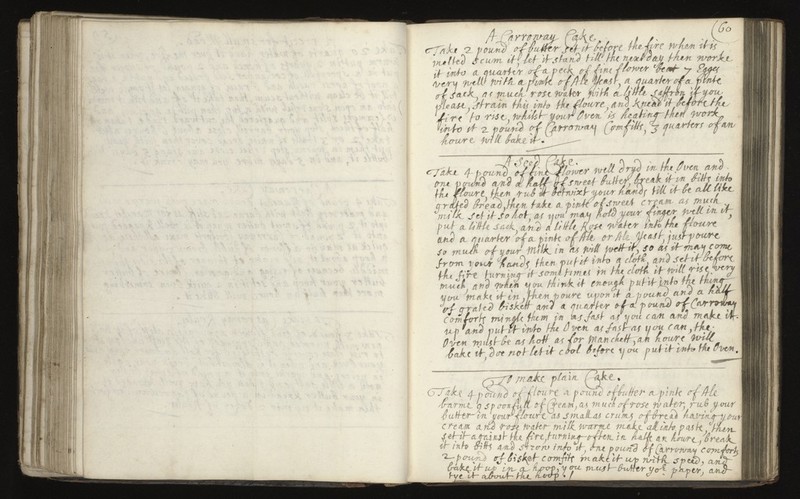 60
A Carroway Cake.
Take 2 pound of butter set it before the fire when it is
melted scum it, let it stand till the next day then worke
it into a quarter of a peck of fine flower beat 7 Eggs
very well with a pinte of Ale Yeast, a quarter of a pinte
of sack, as much rose water with a little saffron if you
please, strain this into the floure, and knead it before the
fire to rise, whilst your Oven is heating then work
into it 2 pound of Carroway Comfitts, 3 quarters of an
houre will bake it.
A Seed Cake.
Take 4 pound of fine flower well dryd in the Oven and
one pound and a half of sweet butter, break it in bitts into
the floure, then rub it betwixt your hands till it be all like
grated bread, then take a pinte of sweet cream as much
milk set it so hot, as you may hold your finger well in it,
put a little sack, and a little Rose water into the floure
and a quarter of a pinte of Ale or Ale Yeast, just poure
so much of your milk in as will wett it, so as it may come
from your hands then put it into a cloth, and set it before
the fire turning it som times in the cloth it will rise very
much, and when you think it enough put it into the thing
you make it in, then poure upon it a pound and a half
of grated biskett and a quarter of a pound of Carroway
Comforts mingle them in as fast as you can and make it
up and put it into the Oven as fast as you can, the
Oven must be as hott as for manchett, an houre will
bake it, doe not let it cool before you put it into the Oven.
To make plain Cake.
Take 4 pound of floure a pound of butter a pinte of Ale
barme 9 spoonfull of Cream, as much of rose water, rub your
butter in your floure as small as crums of bread having your
cream and rose water milk warme make all into paste, then
set it against the fire, turning often in halfe an houre, break
it into bitts and strow into it, one pound of Carroway comforts
2 pound of bisket comfits make it up with speed, and
bake it up in a hoop, you must butter yor paper, and
tye it about the hoop.